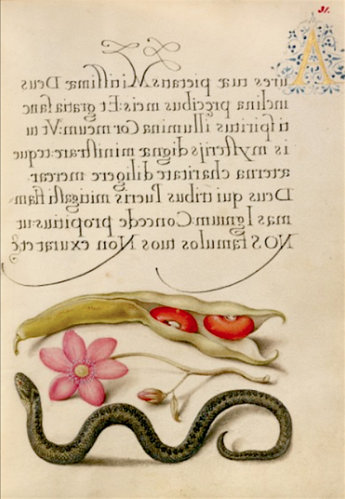 31.
Aures tuæ pietatis Mitissimæ Deus
inclina precibus meis Et gratia sanc
ti spiritus illumina Cor meum: Vt tu
is mysterijs dignæ ministrare: teque
æterna charitate diligere merear
Deus qui tribus Pueris mitigasti flam
mas Ignium: Concede propitius: ut
NOS famulos tuos Non exurat etc